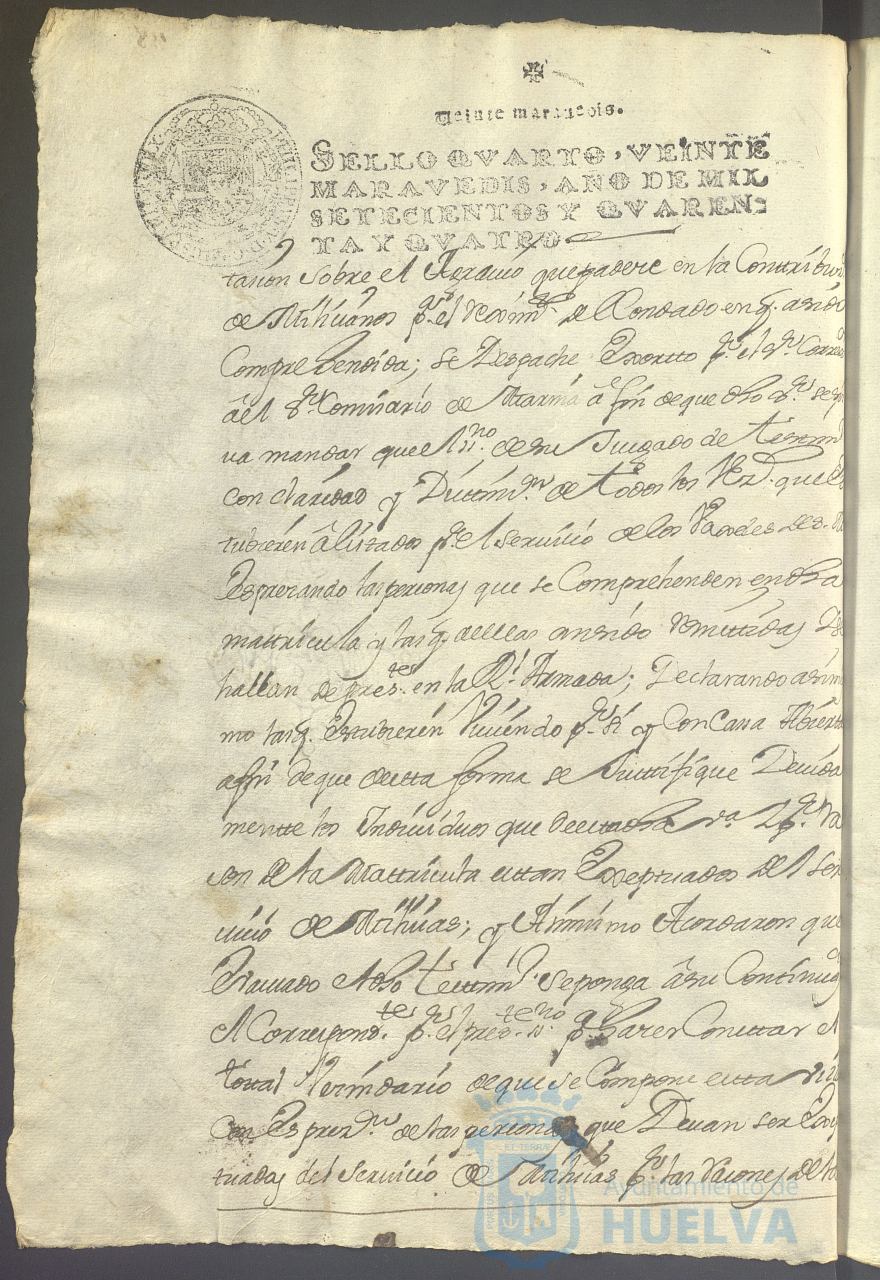 Veinte maravedis.
SELLO QVARTO, VEINTE
MARAVEDIS, AÑO DE MIL
SETECIENTOS Y QVAREN-
TA Y QVATRO
tacion sobre el Agravio que padece en la Contribuz.
de Milicianos pr. el del Condado en q. a sido
Comprehendida; se Despache Exorto pr. el Sr. Correx
â el Sr. Comisario de Marina â fin de que dho Sr. se sir
va mandar que el no. de su Juzgado de testim
con claridad y de todos los Vez. que es
tubieren âlistados pr. el servicio de los Vaxeles de S. M
Expresando las personas que se Comprehenden en dha
mattricula y las q. de ellas an sido remitidas y se
hallan de pres.tes en la Rl. Armada; Declarando asimi
mo las q. Estubieren Viviendo pr. si y con Casa Abierta
a fin de que de esta forma se Justtifique Devida
mentte los Individuos que de esta dha va. pr. ra
son de la Mattricula esttan Exseptuados del ser
vicio de Milicias; y Asimismo Acordaron que
Evacuado el dho testtim. se ponga â su Continuaz
el Correspond.te pr. el pres.te no. pa. hacer Consttar el
total Vecindario de que se Compone estta Villa
Con Expres.n de las personas que Devan ser Exep
tuadas del servicio de Milicias pr. las razones de la
Ayuntamiento de
HUELVA